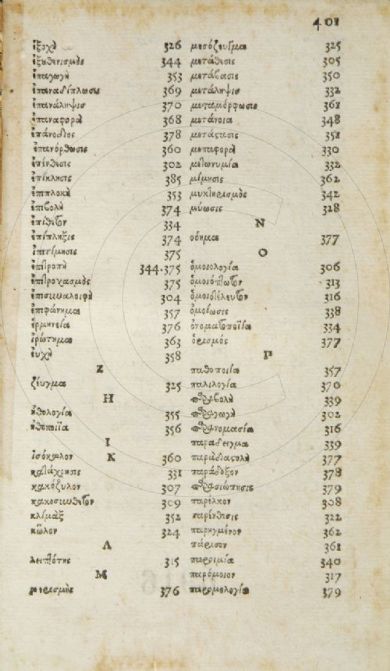 401
ἐξοχὴ 326
ἐξυθενισμὸς 344
ἐπαγωγὴ 353
ἐπαναδίπλωσις 369
ἐπανάληψις 370
ἐπαναφορὰ 368
ἐπάνοδος 378
ἐπανόρθωσις 360
ἐπένθεσις 302
ἐπίκλησις 385
ἐπιπλοκὴ 353
ἐπιβολὴ 374
ἐπίθετον 334
ἐπίπληξις 374
ἐπιτίμησις 375
ἐπιτροπὴ 344.375
ἐπιτροχασμὸς 375
ἐπισυναλοιφὴ 304
ἐπιφώνημα 357
ἑρμηνεία 376
ἐρώτημα 363
εὐχὴ 358
Ζ
ζεῦγμα 325
Η
ἠθολογία 355
ἠθοποιΐα 356
Ι
ἰσόκωλον 360
Κ
κατάχρησις 331
κακόζυλον 307
κακοσυνθετον 309
κλίμαξ 352
κῶλον 324
Λ
λεπτότης 315
Μ
μερισμὸς 376
μεσόζευγμα 325
μετάθεσις 305
μετάβασις 350
μετάληψις 332
μεταμόρφωσις 361
μετάνοια 348
μετάστασις 351
μεταφορὰ 330
μετωνυμία 332
μίμησις 362
μυκτηρισμὸς 342
μείωσις 328
Ν
νόημα 377
Ο
ὁμοιολογία 306
ὁμοιόπτωτον 313
ὁμοιοτέλευτον 316
ὁμοίωσις 338
ὀνοματοποιΐα 334
ὁρισμὸς 377
Π
παθοποιία 357
παλιλογία 370
παραβολὴ 339
παραγωγὴ 302
παρονομασία 316
παράδειγμα 339
παραδιαστολὴ 377
παράδοξον 378
παρασιώπησις 379
παρέλκον 308
παρένθεσις 322
παρηγμένον 362
πάρισον 361
παροιμία 340
παρόμοιον 317
παρομολογία 379